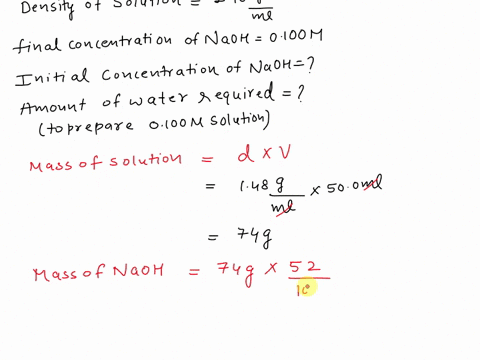 Density of solution =
ml
final concentration of NaOH = 0.100M
Initial Concentration of NaOH = ?
Amount of water required = ?
(to prepare 0.100M solution)
Mass of solution = d × V
= 1.48 g/ml × 50.0 ml
= 74g
Mass of NaOH = 74g × 52/10